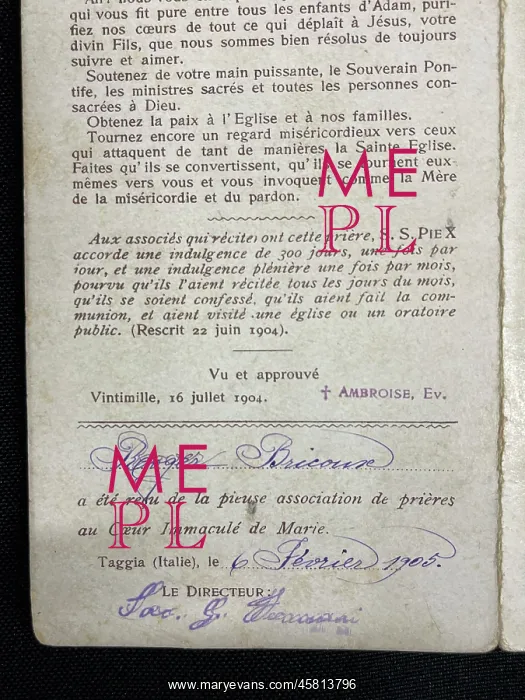 qui vous fit pure entre tous les enfants d'Adam, puri-
fiez nos cœurs de tout ce qui déplaît à Jésus, votre
divin Fils, que nous sommes bien résolus de toujours
suivre et aimer.
Soutenez de votre main puissante, le Souverain Pon-
tife, les ministres sacrés et toutes les personnes con-
sacrées à Dieu.
Obtenez la paix à l'Eglise et à nos familles.
Tournez encore un regard miséricordieux vers ceux
qui attaquent de tant de manières la Sainte Eglise.
Faites qu'ils se convertissent, qu'ils se tournent eux-
mêmes vers vous et vous invoquent comme la Mère
de la miséricordie et du pardon.
Aux associés qui récitei ont cette prière, S. S. PIE X
accorde une indulgence de 300 jours, une fois par
jour, et une indulgence plénière une fois par mois,
pourvu qu'ils l'aient récitée tous les jours du mois,
qu'ils se soient confessé, qu'ils aient fait la com-
munion, et aient visité une église ou un oratoire
public. (Rescrit 22 juin 1904).
Vu et approuvé
Vintimille, 16 jullet 1904. † AMBROISE, Ev.
Roger Bricoux
a été reçu de la pieuse association de prières
au Cœur Immaculé de Marie.
Taggia (Italie), le 6 Février 1905.
LE DIRECTEUR:
Sac. G.
ME
PL
ME
PL
www.maryevans.com/45813796